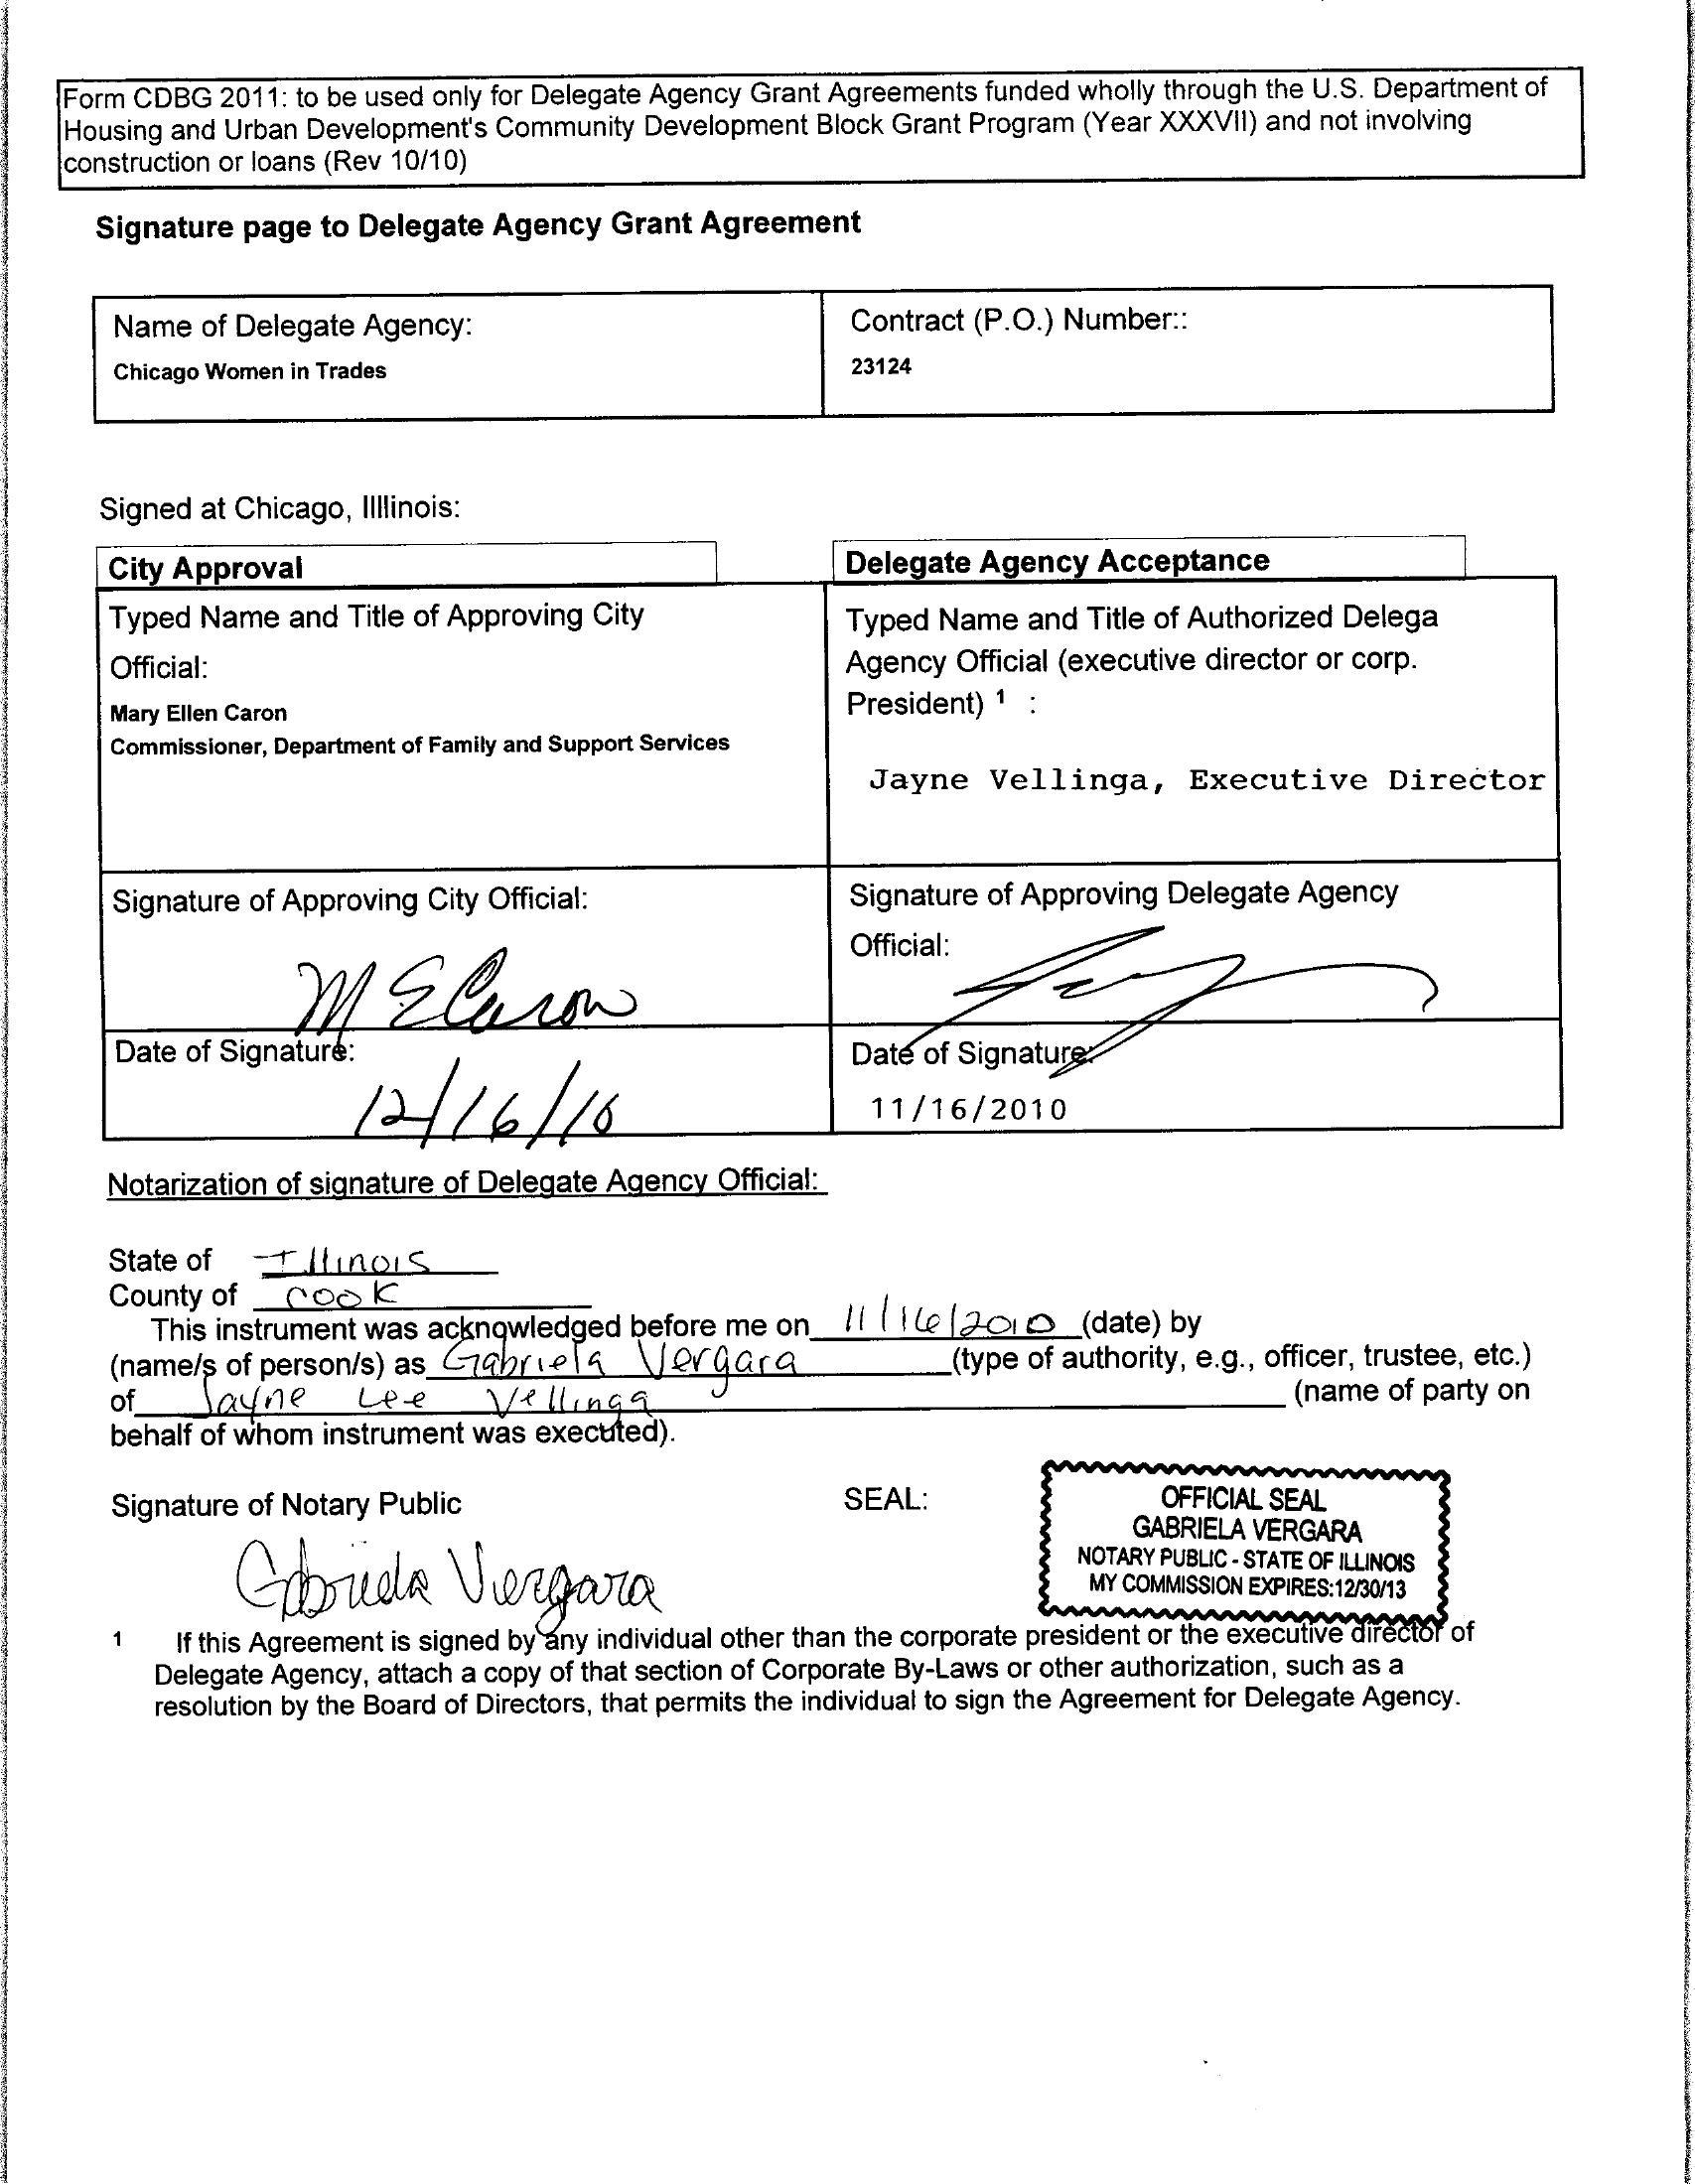 Form CDBG 2011: to be used only for Delegate Agency Grant Agreements funded wholly through the U.S. Department of
Housing and Urban Development's Community Development Block Grant Program (Year XXXVII) and not involving
construction or loans (Rev 10/10)
Signature page to Delegate Agency Grant Agreement
Name of Delegate Agency:
Chicago Women in Trades
Contract (P.O.) Number::
23124
Signed at Chicago, Illlinois:
City Approval
Typed Name and Title of Approving City
Official:
Mary Ellen Caron
Commissioner, Department of Family and Support Services
Delegate Agency Acceptance
Typed Name and Title of Authorized Delega
Agency Official (executive director or corp.
President) 1 :
Jayne Vellinga, Executive Director
Signature of Approving City Official:
M E Caron
Signature of Approving Delegate Agency
Official:
Date of Signature:
12/16/10
Date of Signature:
11/16/2010
Notarization of signature of Delegate Agency Official:
State of Illinois
County of Cook
This instrument was acknowledged before me on 11/16/2010 (date) by
(name/s of person/s) as Gabriela Vergara (type of authority, e.g., officer, trustee, etc.)
of Jayne Lee Vellinga (name of party on
behalf of whom instrument was executed).
Signature of Notary Public
Gabriela Vergara
SEAL:
OFFICIAL SEAL
GABRIELA VERGARA
NOTARY PUBLIC - STATE OF ILLINOIS
MY COMMISSION EXPIRES:12/30/13
1 If this Agreement is signed by any individual other than the corporate president or the executive director of
Delegate Agency, attach a copy of that section of Corporate By-Laws or other authorization, such as a
resolution by the Board of Directors, that permits the individual to sign the Agreement for Delegate Agency.